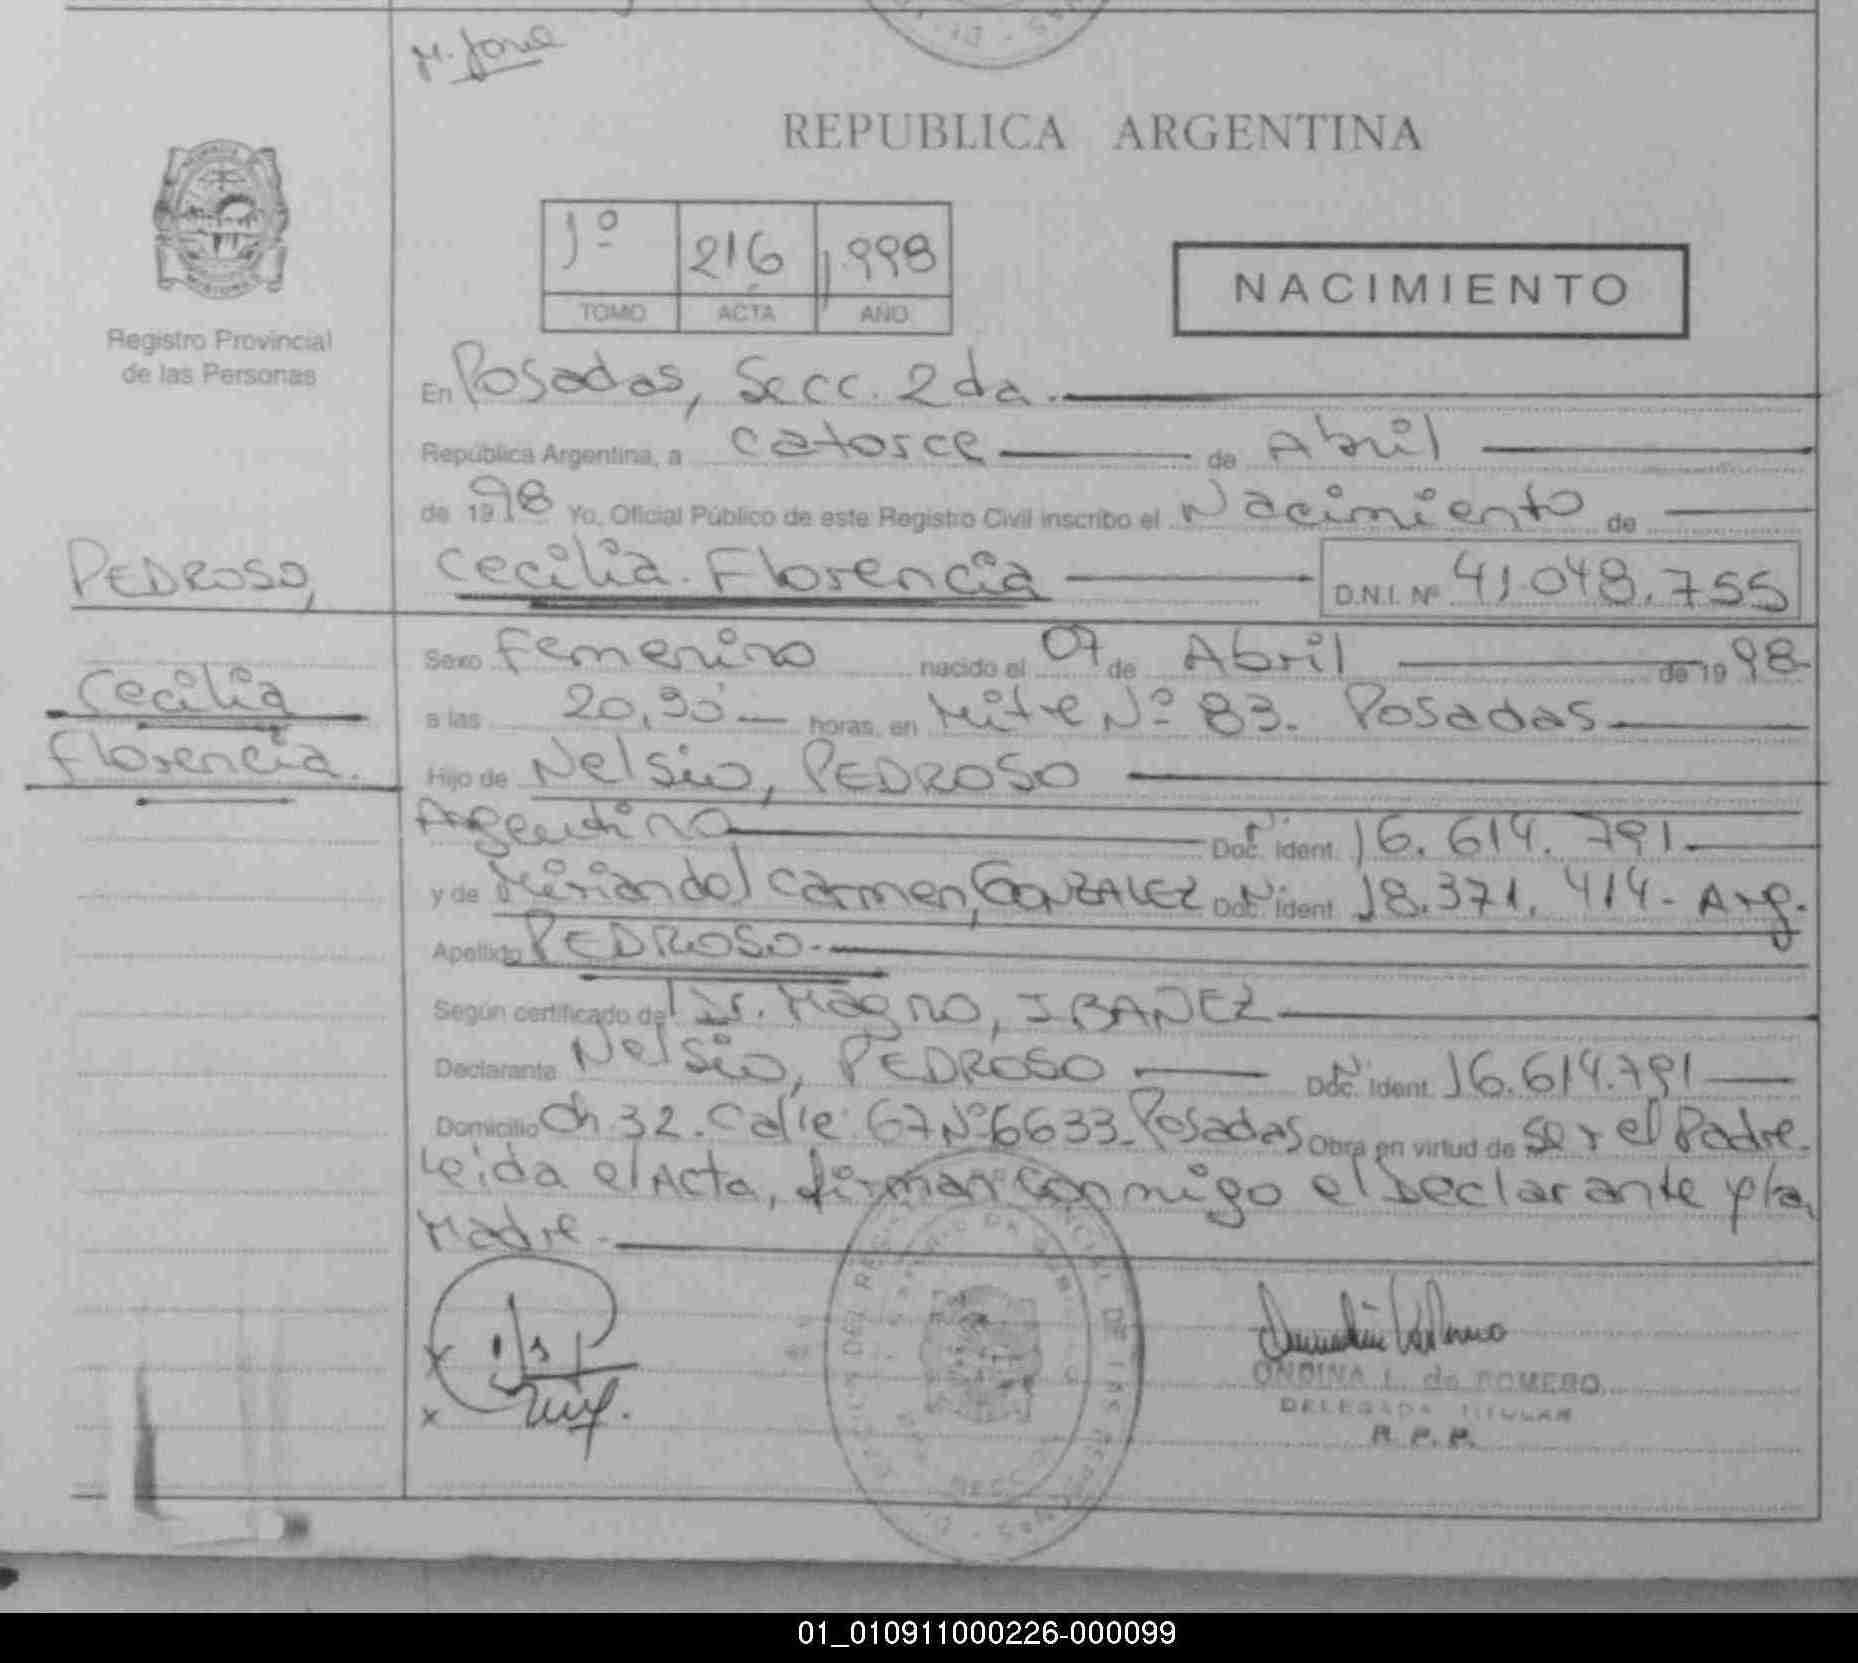 REPUBLICA ARGENTINA
1º 216 1998
TOMO ACTA AÑO
NACIMIENTO
Registro Provincial
de las Personas
En Posadas, Secc. 2da.
República Argentina, a catorce de Abril
de 1998 Yo, Oficial Público de este Registro Civil inscribo el Nacimiento de
PEDROSO,
Cecilia
Florencia.
Cecilia Florencia D.N.I. Nº 41.048.755
Sexo Femenino nacido el 07 de Abril de 1998
a las 20,30 horas, en Mitre Nº 83. Posadas
Hijo de Nelsio, PEDROSO
Argentino Doc. Ident. 16.614.791.
y de Mirian del Carmen, GONZALEZ Doc. Ident. 18.371.414- Arg.
Apellido PEDROSO.
Según certificado de Dr. Magno, IBAÑEZ
Declarante Nelsio, PEDROSO Doc. Ident. 16.614.791
Domicilio Ch 32. Calle 67 Nº 6633. Posadas Obra en virtud de ser el Padre.
Leida el Acta, firman conmigo el Declarante y la
Madre.
ONDINA L. de ROMERO
DELEGADA TITULAR
R. P. P.
01_010911000226-000099